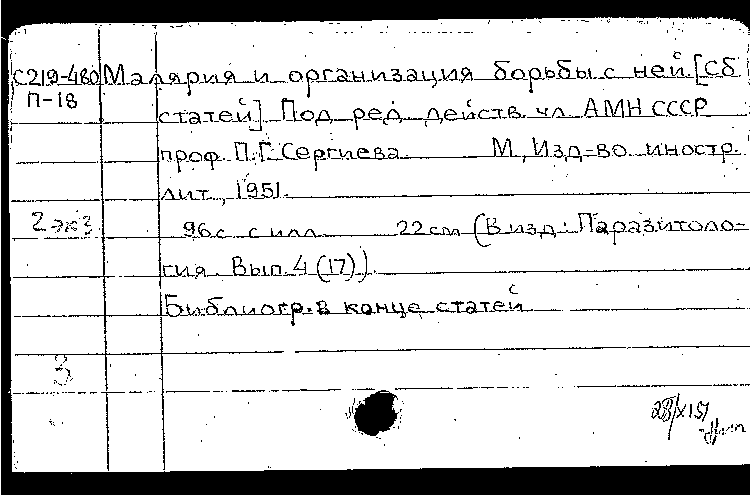 С219-480 Малярия и организация борьбы с ней. [Сб
П-18 статей] Под ред. действ. чл. АМН СССР
проф. П.Г. Сергиева М., Изд-во иностр.
лит., 1951.
2 экз 96 с. с илл. 22 см (В изд.: Паразитоло-
гия. Вып. 4 (17)).
Библиогр. в конце статей
3
28/XI51